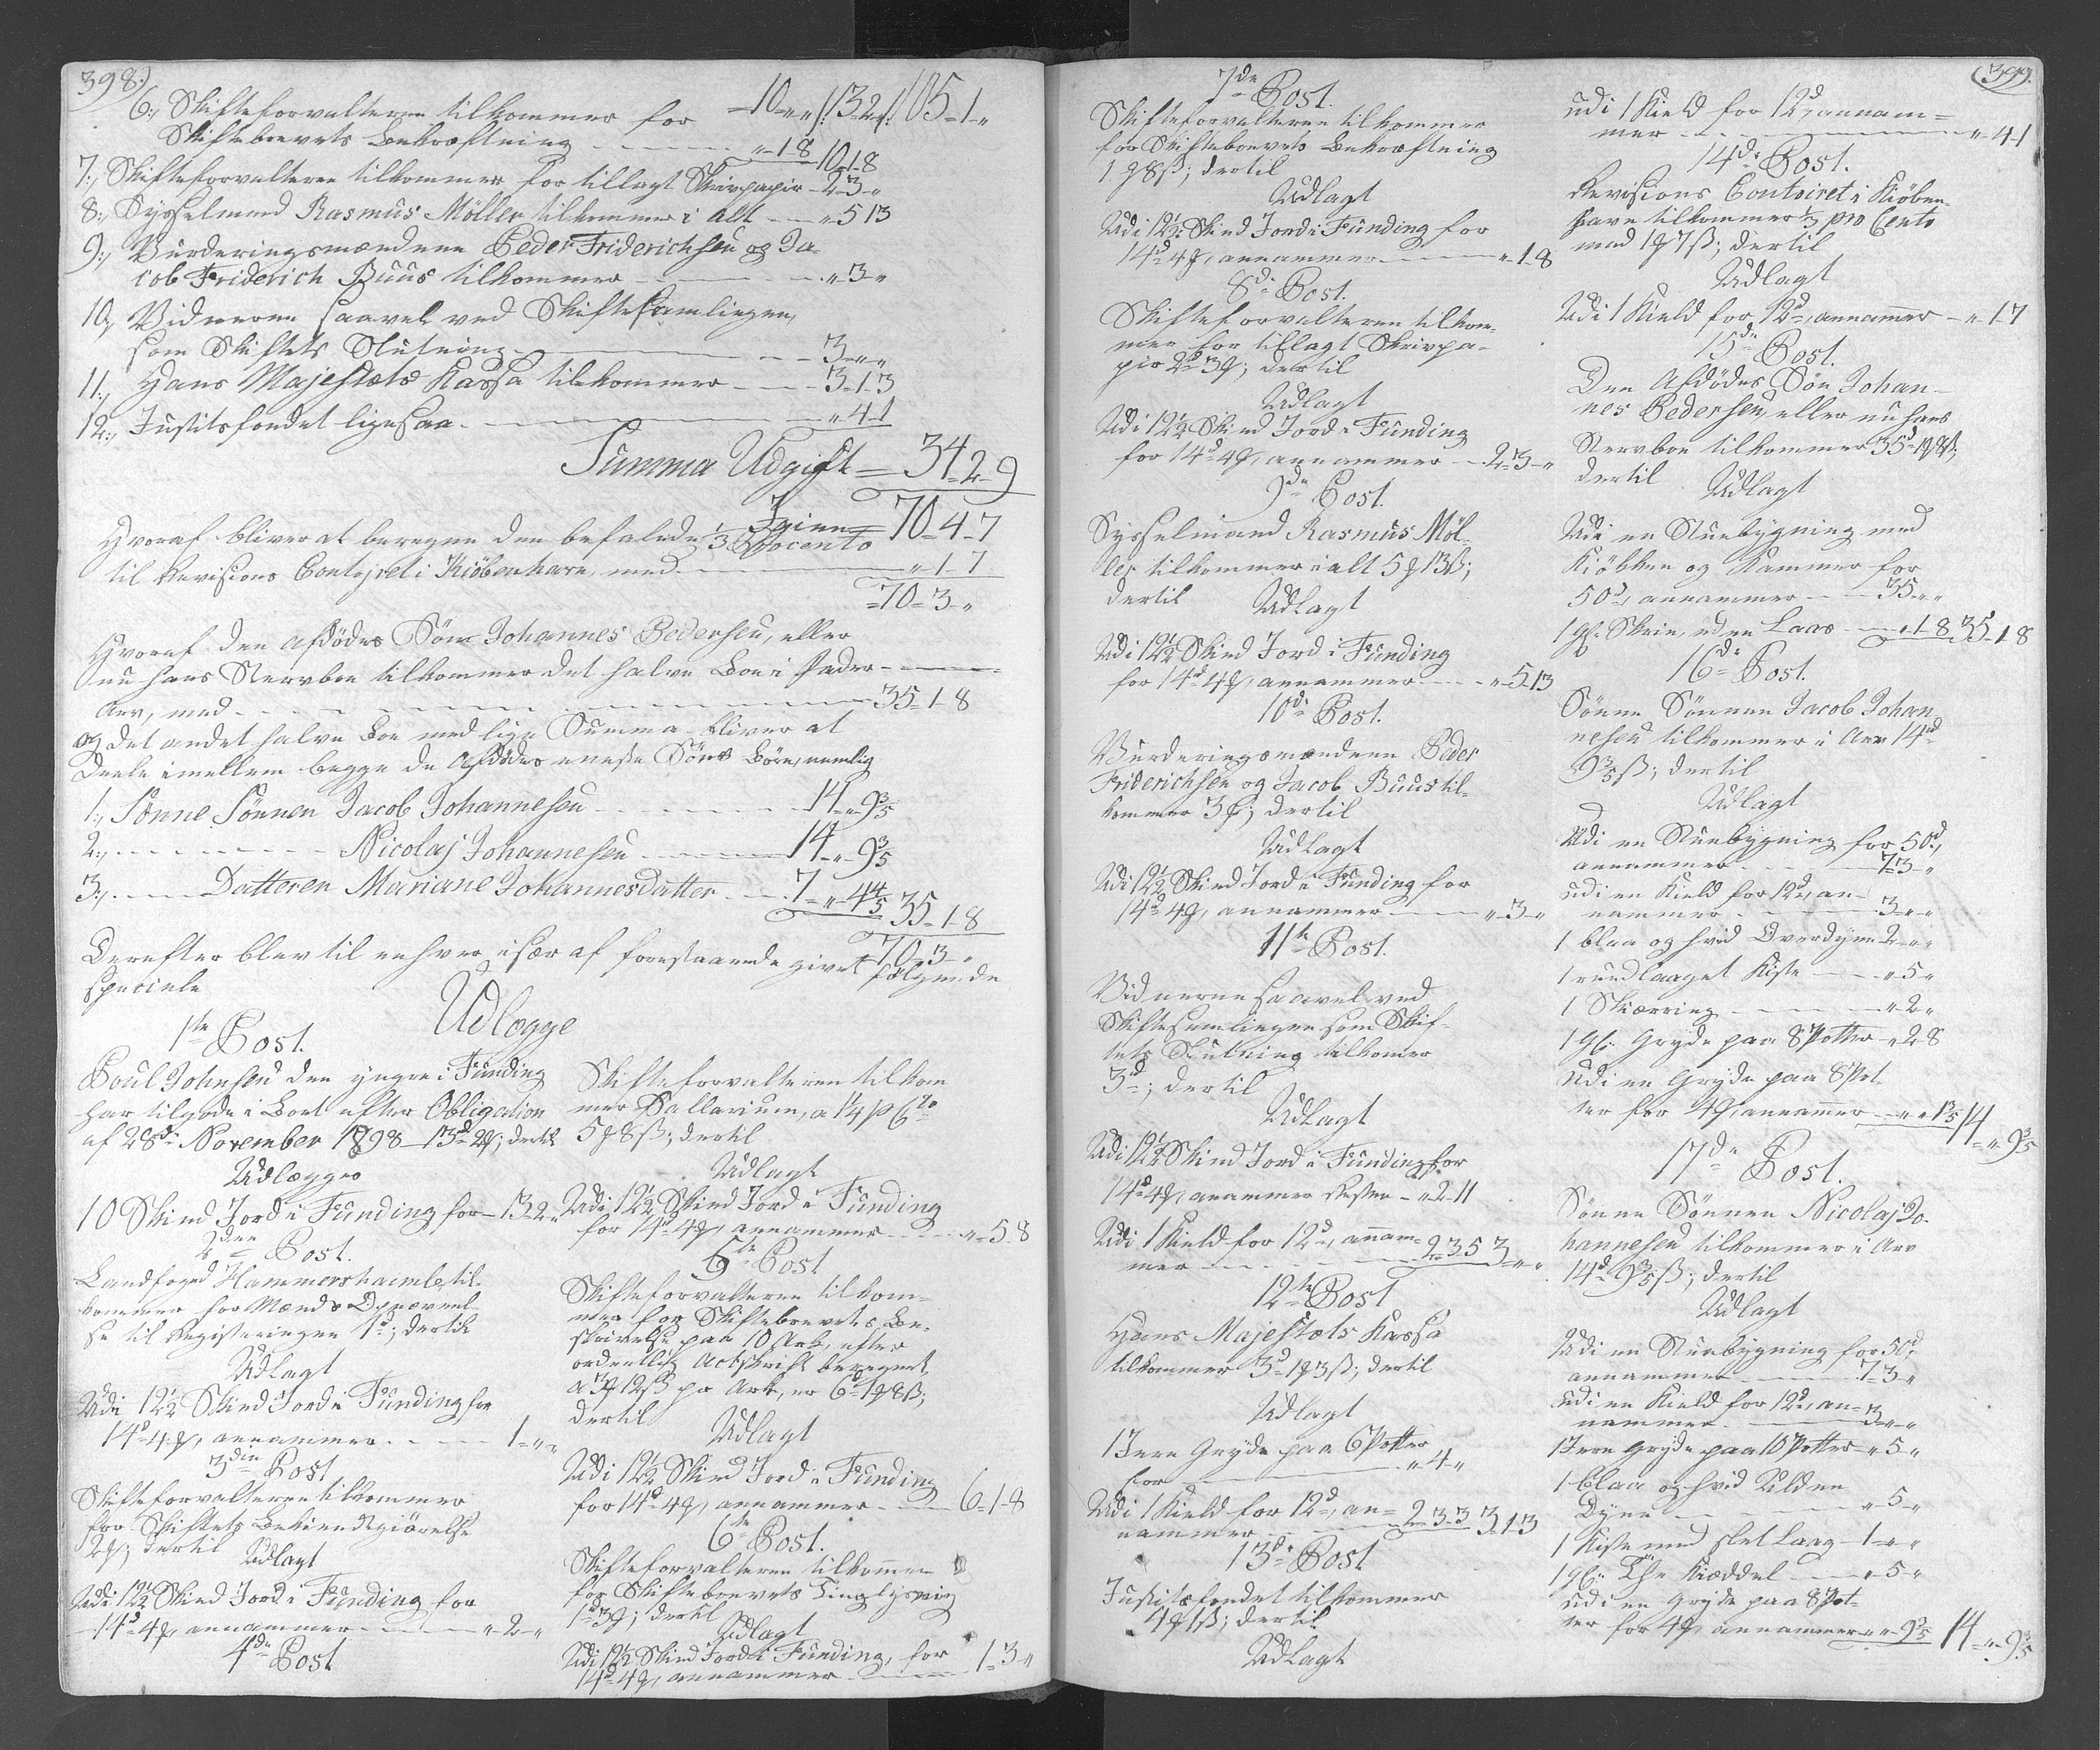 398.)
6., Skifteforvalteren tilkommer for -10 „ „ /: 13-2-„ /: 105-1-„
Skiftebrevets Bekræftning - - - „-1-8 10-1-8
7., Skifteforvalteren tilkommer for tillagt Skrivpapir - 2-3-„
8., Sysselmand Rasmus Möller tilkommer i alt - - „ 5 13
9., Vurderingsmændene Peder Friderichsen og Ja-
cob Friderich Buus tilkommer - - - „-3-„
10., Vidnerne saavel ved Skiftesamlingen,
som Skiftets Slutning - - - 3-„-„
11., Hans Majestæts Kassa tilkommer - - - 3-1-3
12., Justitsfondet ligesaa - - - „-4-1
Summa Udgift = 34-2-9
Igien = 70-4-7
Hvoraf bliver at beregne den befalede 1/3 Procento
til Revisions Contoiret i Kiöbenhavn, med - - - „ 1-7
= 70-3-„
Hvoraf den afdödes Sön Johannes Pedersen, eller
nu hans Stervboe tilkommer det halve Boe i Fader-
Arv, med - - - 35-1-8
og det andet halve Boe med lige Summa bliver at
deele imellem begge de Afdödes eneste Söns Börn, nemlig
1., Sönne Sönnen Jacob Johannesen - - - 14-„-9 3/5
2., - - - Nicolaj Johannesen - - - 14-„-9 3/5
3., - - - Datteren Mariane Johannesdatter - - 7-„-4 4/5 35-1-8
70-3-„
Derefter blev til enhver især af forestaaende givet følgende
specielle
Udlægge
1ste Post.
Poul Johnsen den yngre i Funding
har tilgode i Boet efter Obligation
af 28de November 1898 - 13d 2ȝ; dertil
Udlægges
10 Skind Jord i Funding for - 13-2-„
2den Post.
Landfoged Hammershaimb til-
kommer for Mænds Opnævnel-
se til Registeringen 1d; dertil
Udlagt
Udi 12½ Skind Jord i Funding for
14d 4ȝ, annammer - - - 1-„-„
3die Post
Skifteforvalteren tilkommer
for Skiftets Bekiendtgiörelse
2ȝ; dertil
Udlagt
Udi 12½ Skind Jord i Funding for
14d 4ȝ, annammer - - - „-2-„
4de Post
Skifteforvalteren tilkom
mer Sallarium, a 1¼ p Cto
5ȝ 8ß; dertil
Udlagt
Udi 12½ Skind Jord i Funding
for 14d 4ȝ, annammer - - - „-5 8
5te Post
Skifteforvalteren tilkom-
mer for Skiftebrevets Be-
skrivelse paa 10 Ark, efter
ordentlig Actskrift beregnet,
a 3ȝ 12ß pr Ark, er 6d 1ȝ 8ß;
dertil
Udlagt
Udi 12½ Skind Jord i Funding
for 14d 4ȝ, annammer - - - 6-1-8
6te Post.
Skifteforvalteren tilkommer
for Skiftebrevets Tinglysning
1d 3ȝ; dertil
Udlagt
Udi 12½ Skind Jord i Funding, for
14d 4ȝ, annammer - - - 1-3-„
(399.
7de Post.
Skifteforvalteren tilkommer
for Skiftebrevets Bekræftning
1ȝ 8ß; dertil
Udlagt
Udi 12½ Skind Jord i Funding for
14d 4ȝ, annammer - - - „-1-8
8de Post.
Skifteforvalteren tilkom-
mer for tillagt Skrivpa-
pir 2d 3ȝ; dertil
Udlagt
Udi 12½ Skind Jord i Funding
for 14d 4ȝ, annammer - - 2-3-„
9de Post.
Sysselmand Rasmus Möl-
ler tilkommer i alt 5ȝ 13ß;
dertil
Udlagt
Udi 12½ Skind Jord i Funding
for 14d 4ȝ, annammer - - - „-5-13
10de Post.
Vurderingsmændene Peder
Friderichsen og Jacob Buus til-
kommer 3ȝ; dertil
Udlagt
Udi 12½ Skind Jord i Funding for
14d 4ȝ, annammer - - - „-3-„
11te Post.
Vidnerne saavel ved
Skiftesamlingen som Skif-
tets Slutning tilkomer
3d; dertil
Udlagt
Udi 12½ Skind Jord i Funding for
14d 4ȝ, anammer Resten - „-2-11
Udi 1 Kield for 12d, annam-
mer - - - 2-3 5 3-„-„
12te Post
Hans Majestæts Kassa
tilkommer 3d 1ȝ 3ß; dertil
Udlagt
1 Jern Gryde paa 6 Potter
for - - - „-4-„
Udi 1 Kield for 12d, an-
nammer - - - 2-3-3 3-1-3
13de Post
Justitsfondet tilkommer
4ȝ 1ß; dertil
Udlagt
udi 1 Kield for 12d, annam-
mer - - - „-4-1
14de Post.
Revisions Contoiret i Kiöben-
havn tilkommer 1/3 pro Cento
med 1ȝ 7ß; dertil
Udlagt
Udi 1 Kield for 12d, annamer - „-1-7
15de Post.
Den Afdödes Sön Johan-
nes Pedersen, eller nu hans
Stervboe tilkommer 35d 1ȝ 8ß;
dertil
Udlagt
Udi en Stuebygning med
Kiökken og Kammer for
50d, annammer - - - 35-„-„
1 gl. Skrin, uden Laas - - „-1-8 35-1-8
16de Post.
Sönne Sönnen Jacob Johan-
nesen tilkommer i Arv 14d
9 3/5 ß; dertil
Udlagt
Udi en Stuebygning for 50d,
annammer - - - 7-3-„
udi en Kield for 12d, an-
nammer - - - 3-„-„
1 blaa og hvid Overdyne 2-„-„
1 rundlaaget Kiste - - „-5-„
1 Skiærring - - - „-2-„
1 gl. Gryde paa 8 Potter - „-2-8
Udi en Gryde paa 8 Pot-
ter for 4ȝ, annamer - „-„-1 3/5 14-„-9 3/5
17de Post.
Sönne Sönnen Nicolaj Jo-
hannesen tilkommer i Arv
14d 9 3/5 ß; dertil
Udlagt
Udi en Stuebygning for 50d,
annammer - - - 7-3-„
udi en Kield for 12d, an-
nammer - - - 3-„-„
1 Jern Gryde paa 10 Potter - „-5-„
1 blaa og hvid Ulden
Dyne - - - „-5-„
1 Kiste med slet Laag - 1-„-„
1 gl. The Kiæddel - - „-5-„
udi en Gryde paa 8 Pot-
ter for 4ȝ, annammer „-„-9 3/5 14-„-9 3/5